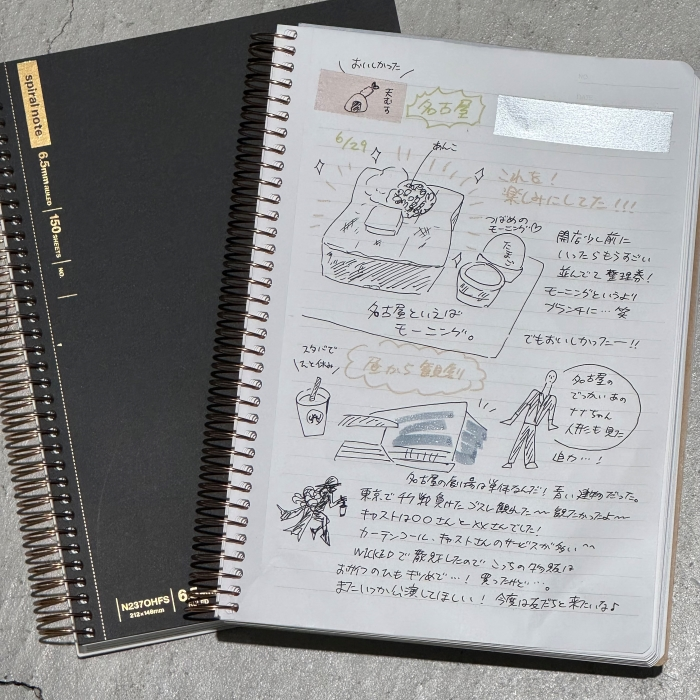 spiral note
6.5mm RULED
150 SHEETS
NO.
N237OHFS
212×148mm
RULED
おいしかった
天むす
名古屋
6/29
あんこ
これを!
楽しみにしてた!!!
つばめの
モーニング♡
たまご
開店少し前に
いったらもうすごい
並んでて整理券!
モーニングというより
ブランチに…笑
でもおいしかったー!!
名古屋といえば
モーニング。
スタバで
ちょと休み
昼から観劇
名古屋の
でっかいあの
ナナちゃん
人形も見た
迫力…!
名古屋の劇場は単体なんだ!青い建物だった。
東京でチケ戦負けたゴスレ観れた〜観たかったよ〜
キャストは〇〇さんと××さんでした!
カーテンコール、キャストさんのサービスが多い
WICKEDで散財したのでこっちの
おサイフのひもギリめで…!買ったけど…。
またいつか公演してほしい!今度は友だちと来たいな♪